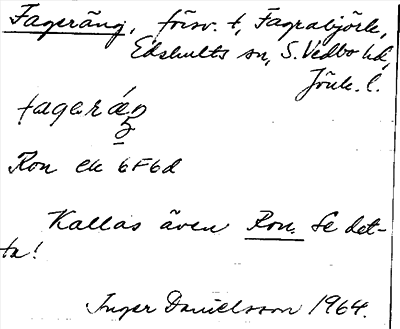 Fageräng, försv. t, Fagrabjörk,
Edshults sn, S. Vedbo hd,
Jönk. l.
Ron ek 6F6d
Kallas även Ron. Se det-
ta!
Inger Danielsson 1964.